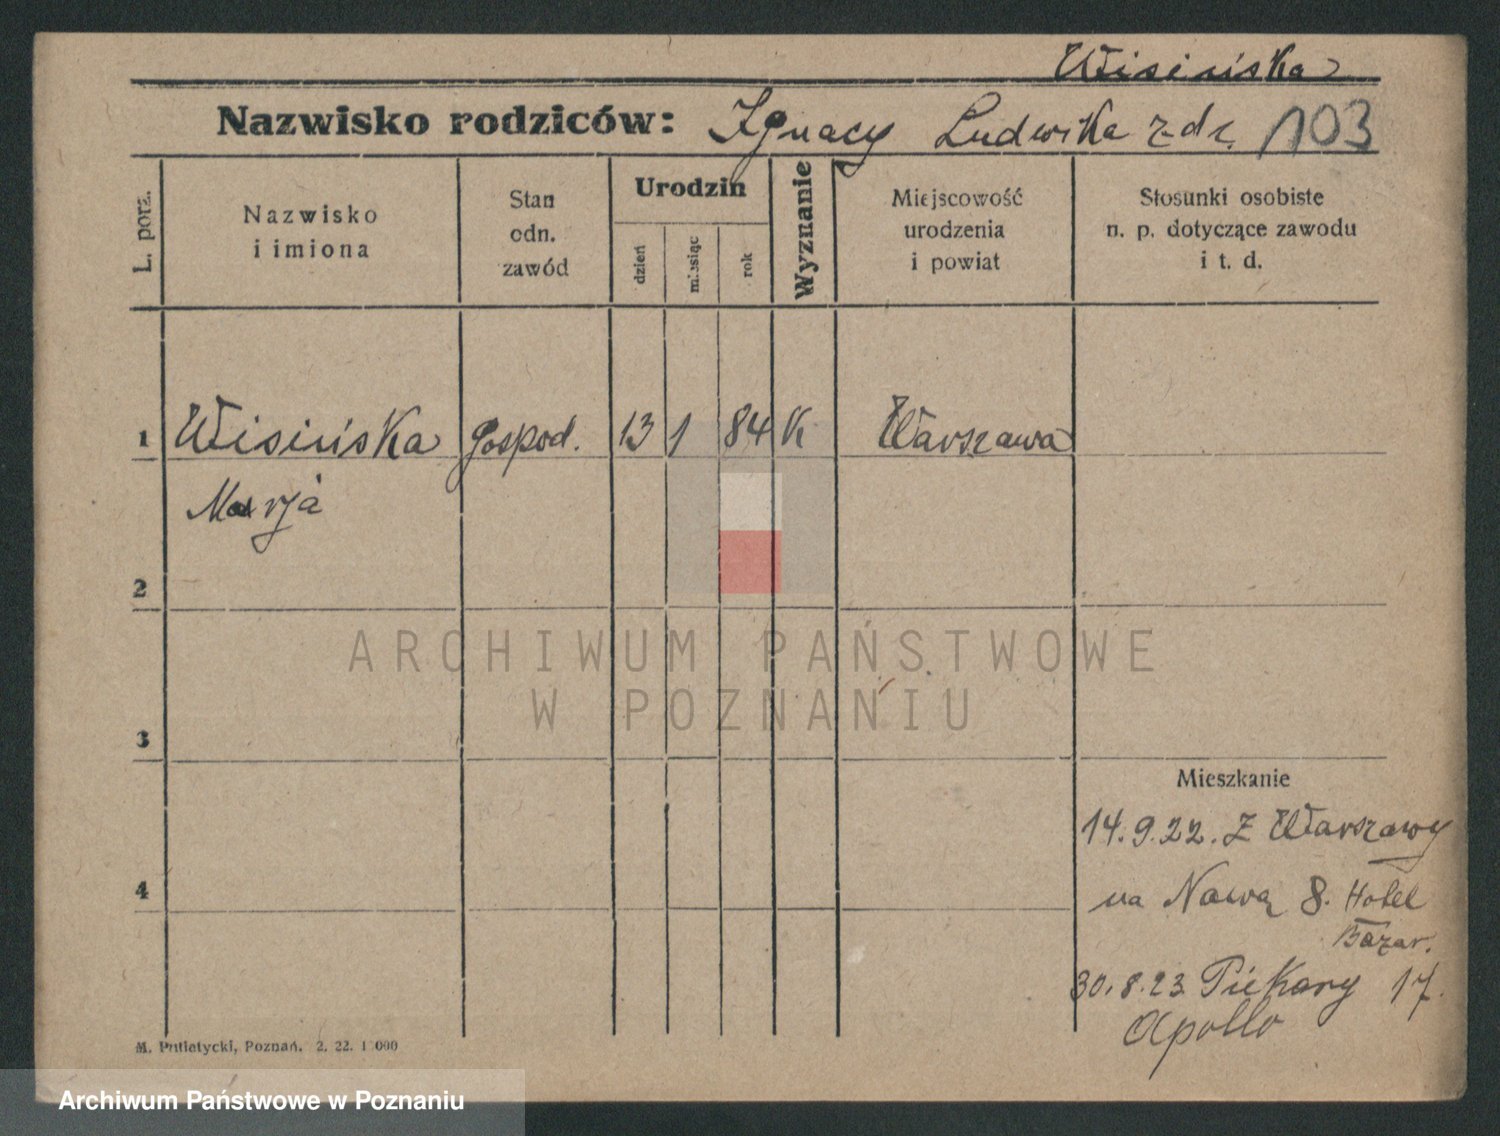 Wisińska
Nazwisko rodziców: Ignacy Ludwika z dr. 103
L. porz.
Nazwisko
i imiona
Stan
odn.
zawód
Urodzin
dzień
miesiąc
rok
Wyznanie
Miejscowość
urodzenia
i powiat
Stosunki osobiste
n. p. dotyczące zawodu
i t. d.
1 Wisińska Gospod. 13 1 84 K Warszawa
Marja
2
ARCHIWUM PAŃSTWOWE
W POZNANIU
3
Mieszkanie
14.9.22. Z Warszawy
4
na Nową 8. Hotel
Bazar.
30.8.23 Piekary 17.
Apollo
M. Putiatycki, Poznań. 2. 22. 1 000
Archiwum Państwowe w Poznaniu